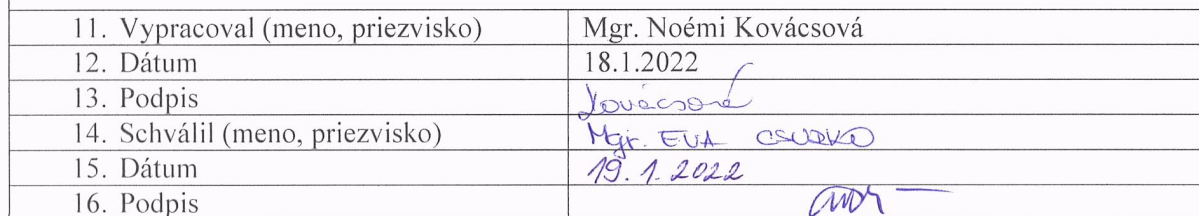 11. Vypracoval (meno, priezvisko) Mgr. Noémi Kovácsová
12. Dátum 18.1.2022
13. Podpis Kovácsová
14. Schválil (meno, priezvisko) Mgr. EVA
15. Dátum 19.1.2022
16. Podpis